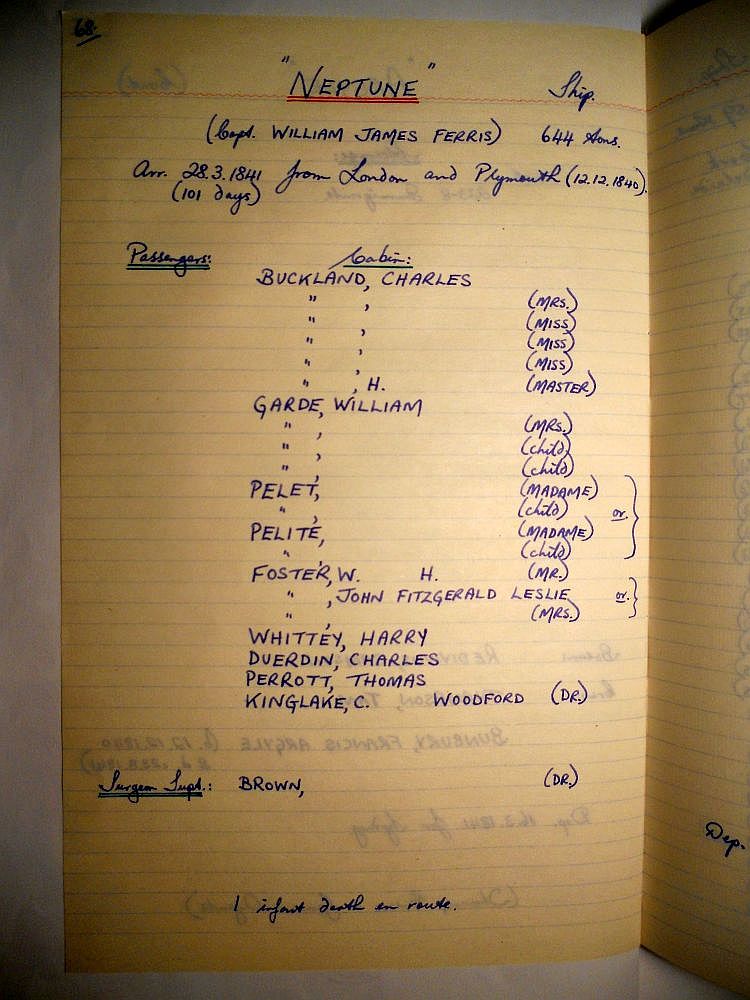 68.
"NEPTUNE" Ship.
(Capt. WILLIAM JAMES FERRIS) 644 tons.
Arr. 28.3.1841 from London and Plymouth (12.12.1840).
(101 days)
Passengers: Cabin:
BUCKLAND, CHARLES
" , (MRS.)
" , (MISS)
" , (MISS)
" , (MISS)
" , H. (MASTER)
GARDE, WILLIAM
" , (MRS.)
" , (child)
" , (child)
PELET, (MADAME)
" , (child) or.
PELITE, (MADAME)
" , (child)
FOSTER, W. H. (MR.)
" , JOHN FITZGERALD LESLIE or.
" , (MRS.)
WHITTEY, HARRY
DUERDIN, CHARLES
PERROTT, THOMAS
KINGLAKE, C. WOODFORD (DR.)
Surgeon Supt.: BROWN, (DR.)
Dep.
1 infant death en route.